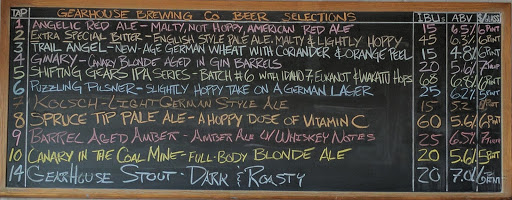 TAP GEARHOUSE BREWING CO BEER SELECTIONS IBUs ABV $/GLASS
1 ANGELIC RED ALE - MALTY, NOT HOPPY, AMERICAN RED ALE 15 6.5%
2 EXTRA SPECIAL BITTER - ENGLISH STYLE PALE ALE, MALTY & LIGHTLY HOPPY 45 6.3%
3 TRAIL ANGEL - NEW-AGE GERMAN WHEAT WITH CORIANDER & ORANGE PEEL 15 4.8%
4 GINARY - CANARY BLONDE AGED IN GIN BARRELS 20 5.6%
5 SHIFTING GEARS IPA SERIES - BATCH #6 WITH IDAHO 7, EUKANOT & WAKATU HOPS 68
6 PUZZLING PILSNER - SLIGHTLY HOPPY TAKE ON A GERMAN LAGER 25
7 KOLSCH - LIGHT GERMAN STYLE ALE 15
8 SPRUCE TIP PALE ALE - A HOPPY DOSE OF VITAMIN C 60 5.6%
9 BARREL AGED AMBER - AMBER ALE W/ WHISKEY NOTES 25 6.5%
10 CANARY IN THE COAL MINE - FULL-BODY BLONDE ALE 20 5.6%
14 GEARHOUSE STOUT - DARK & ROASTY 20 7.0%